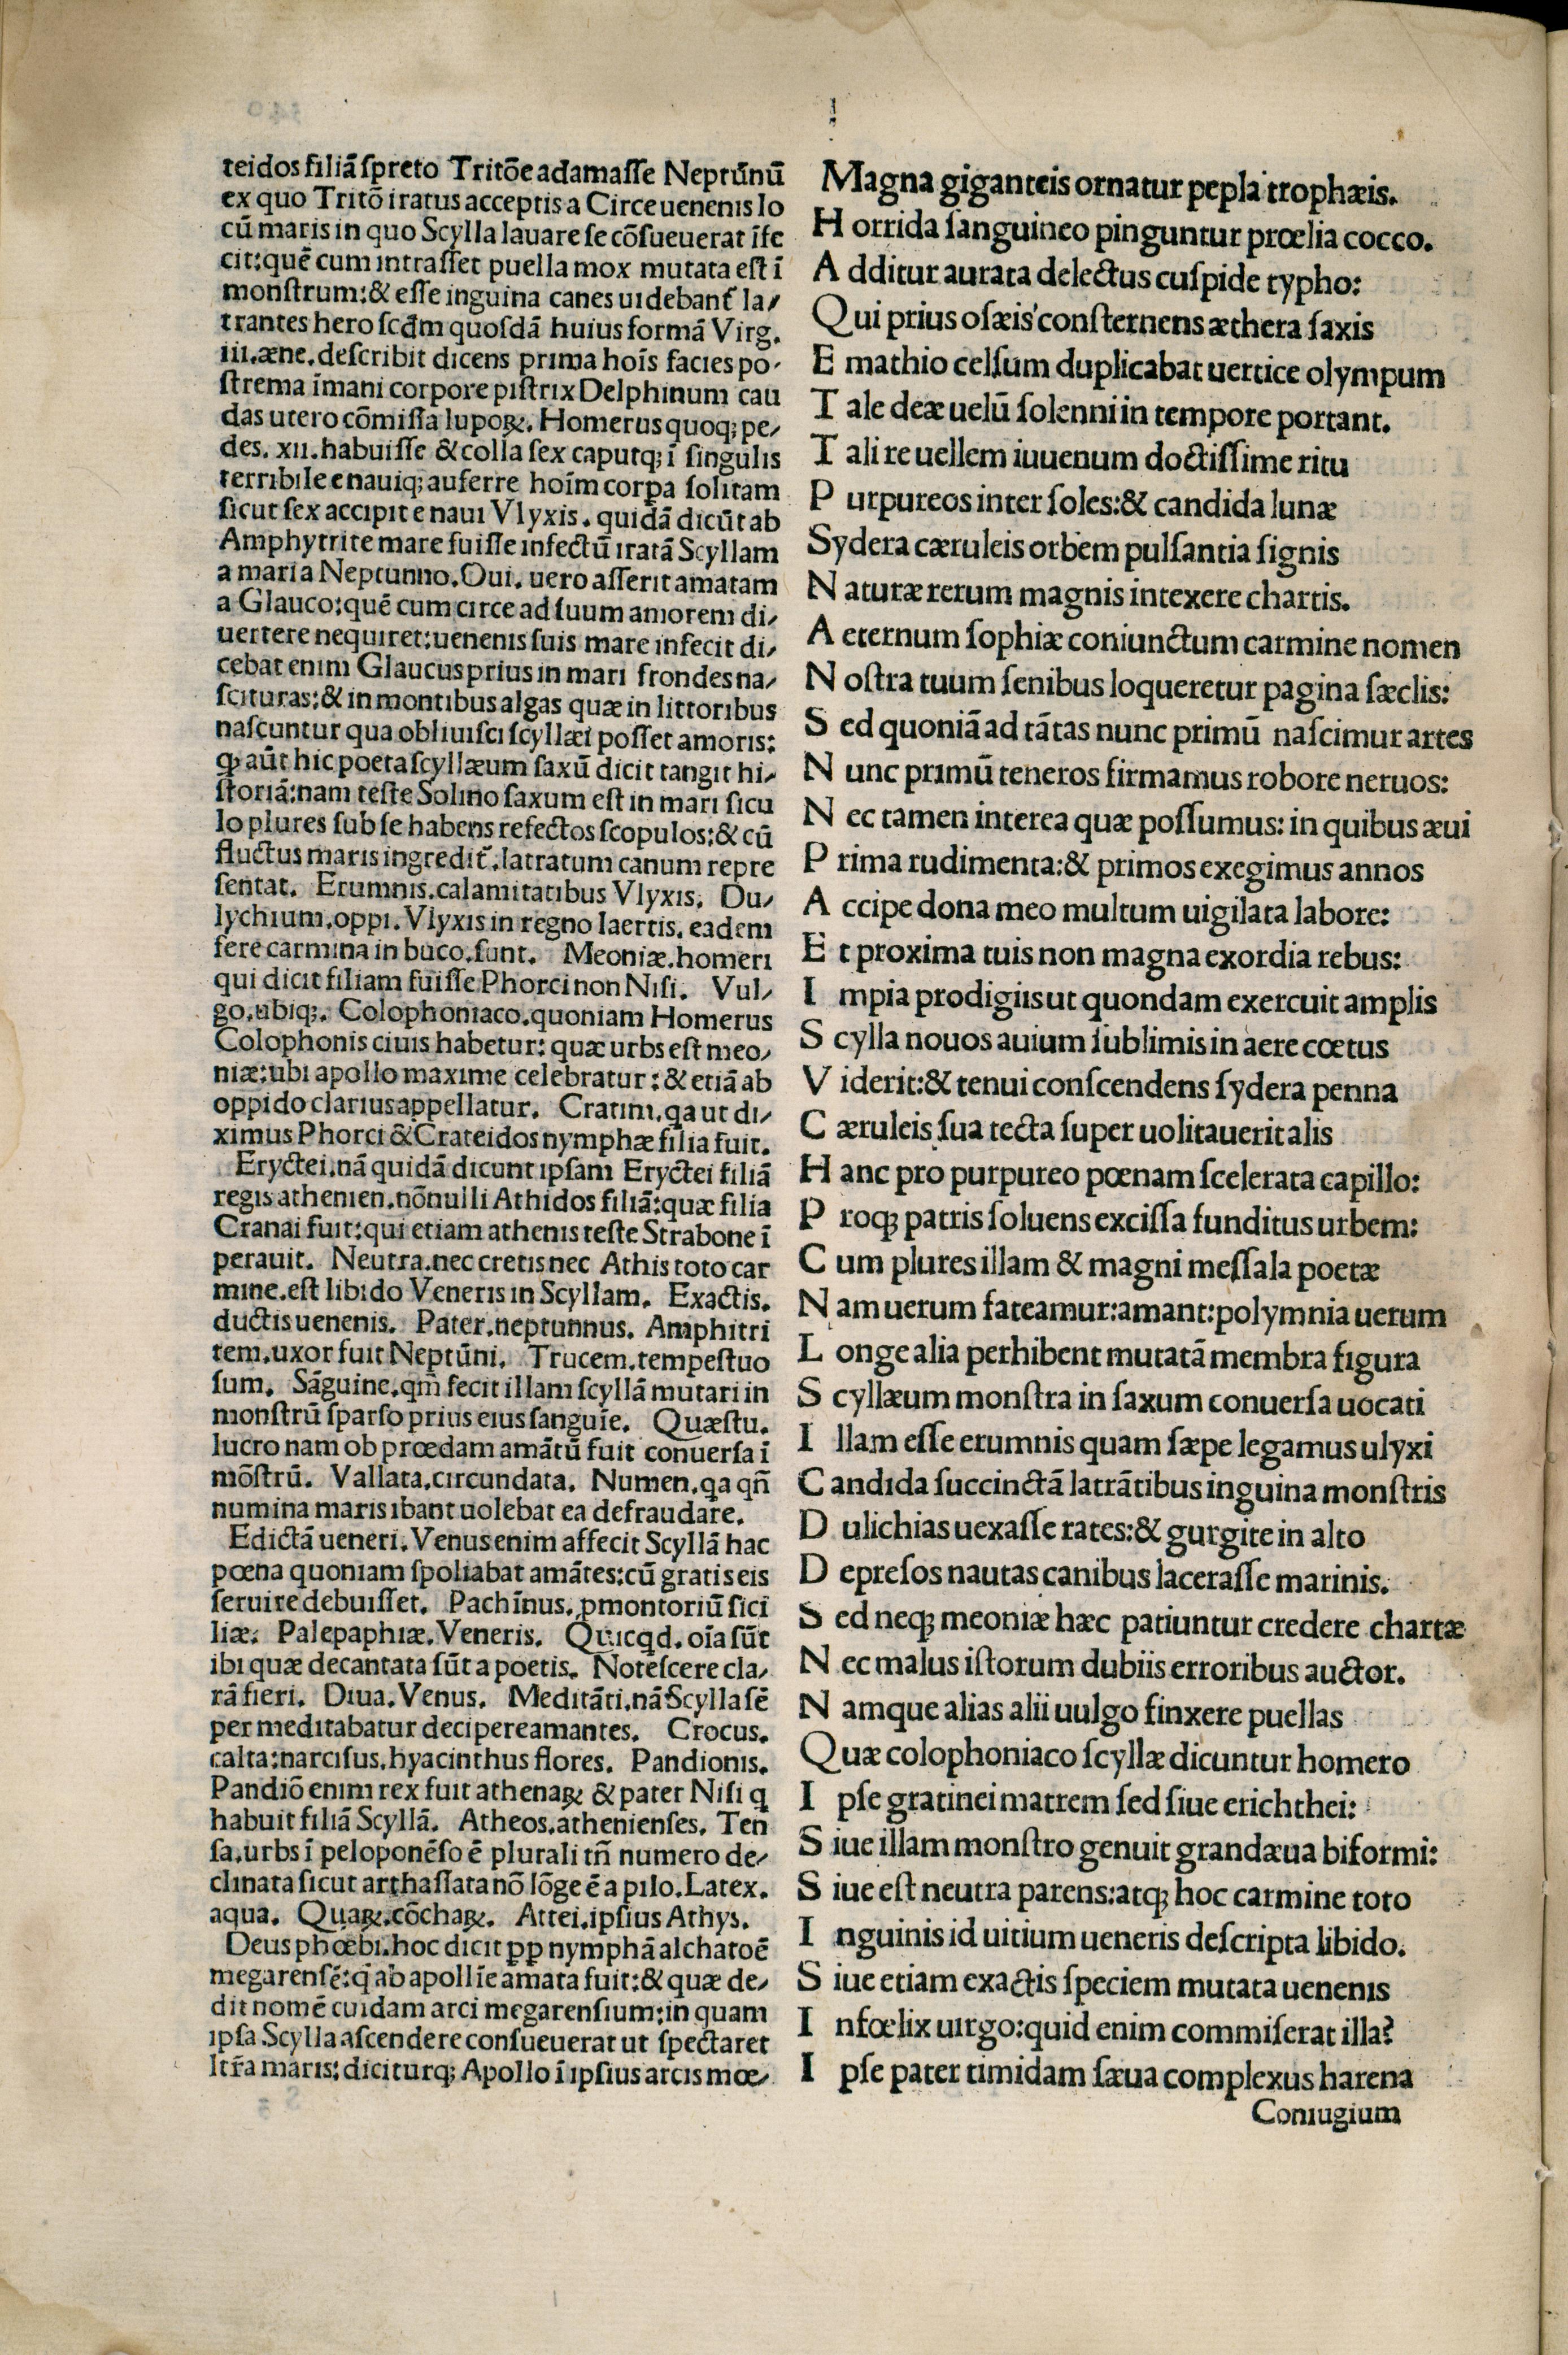 teidos filiã ſpreto Tritõe adamaſſe Neptũnũ
ex quo Tritõ iratus acceptis a Circe uenenis lo
cũ maris in quo Scylla lauare ſe cõſueuerat ĩfe
cit:quẽ cum intraſſet puella mox mutata eſt ĩ
monſtrum:& eſſe inguina canes uidebant̃ la/
trantes hero ſcd̃m quoſdã huius formã Virg.
iii.æne.deſcribit dicens prima hoĩs facies po-
ſtrema ĩmani corpore piſtrix Delphinum cau
das utero cõmiſſa lupoꝝ. Homerus quoqꝫ pe/
des. xii.habuiſſe & colla ſex caputqꝫ ĩ ſingulis
terribile e nauiqꝫ auferre hoĩm corꝑa ſolitam
ſicut ſex accipit e naui Vlyxis. quidã dicũt ab
Amphytrite mare fuiſſe infectũ iratã Scyllam
a mari a Neptunno.Oui. uero aſſerit amatam
a Glauco:quẽ cum circe ad ſuum amorem di/
uertere nequiret:uenenis ſuis mare infecit di/
cebat enim Glaucus prius in mari frondes na/
ſcituras:& in montibus algas quæ in littoribus
naſcuntur qua obliuiſci ſcyllæi poſſet amoris:
ꝙ aũt hic poeta ſcyllæum ſaxũ dicit tangit hi/
ſtoriã:nam teſte Solino ſaxum eſt in mari ſicu
lo plures ſub ſe habens refectos ſcopulos:& cũ
fluctus maris ingredit̃.latratum canum repre
ſentat. Erumnis.calamitatibus Vlyxis. Du/
lychium.oppi.Vlyxis in regno laertis.eadem
fere carmina in buco.ſunt. Meoniæ.homeri
qui dicit filiam fuiſſe Phorci non Niſi. Vul/
go.ubiqꝫ. Colophoniaco.quoniam Homerus
Colophonis ciuis habetur: quæ urbs eſt meo/
niæ:ubi apollo maxime celebratur:& etiã ab
oppido clarius appellatur. Cratini.qa ut di/
ximus Phorci & Crateidos nymphæ filia fuit.
Eryctei.nã quidã dicunt ipſam Eryctei filiã
regis athenien.nõnulli Athidos filiã:quæ filia
Cranai fuit:qui etiam athenis teſte Strabone ĩ
perauit. Neutra.nec cretis nec Athis toto car
mine.eſt libido Veneris in Scyllam. Exactis.
ductis uenenis. Pater.neptunnus. Amphitri
tem.uxor fuit Neptũni. Trucem.tempeſtuo
ſum. Sãguine.qm̃ fecit illam ſcyllã mutari in
monſtrũ ſparſo prius eius ſanguĩe. Quæſtu.
lucro nam ob prœdam amãtũ fuit conuerſa ĩ
mõſtrũ. Vallata.circundata. Numen.qa qñ
numina maris ibant uolebat ea defraudare.
Edictã ueneri.Venus enim affecit Scyllã hac
pœna quoniam ſpoliabat amãtes:cũ gratis eis
ſeruire debuiſſet. Pachĩnus.ꝓmontoriũ ſici
liæ. Palepaphiæ.Veneris. Quicqd.oĩa ſũt
ibi quæ decantata ſũt a poetis. Noteſcere cla/
rã fieri. Diua.Venus. Meditãti.nã Scylla ſẽ
per meditabatur decipere amantes. Crocus.
calta:narciſus.hyacinthus flores. Pandionis.
Pandiõ enim rex fuit athenaꝝ & pater Niſi q
habuit filiã Scyllã. Atheos.athenienſes. Teñ
ſa.urbs ĩ peloponẽſo ẽ plurali tñ numero de/
clinata ſicut arthaſſata nõ lõge ẽ a pilo.Latex.
aqua. Quaꝝ.cõchaꝝ. Attei.ipſius Athys.
Deus phœbi.hoc dicit ꝓꝑ nymphã alchatoẽ
megarenſẽ:q̃ ab apollĩe amata fuit:& quæ de/
dit nomẽ cuidam arci megarenſium:in quam
ipſa Scylla aſcendere conſueuerat ut ſpectaret
ltr̃a maris:diciturqꝫ Apollo ĩ ipſius arcis mœ/
Magna giganteis ornatur pepla trophæis.
H orrida ſanguineo pinguntur prœlia cocco.
A dditur aurata delectus cuſpide typho:
Qui prius oſæis conſternens æthera ſaxis
E mathio celſum duplicabat uertice olympum
T ale deæ uelũ ſolenni in tempore portant.
T ali re uellem iuuenum doctiſſime ritu
P urpureos inter ſoles:& candida lunæ
Sydera cæruleis orbem pulſantia ſignis
N aturæ rerum magnis intexere chartis.
A eternum ſophiæ coniunctum carmine nomen
N oſtra tuum ſenibus loqueretur pagina ſæclis:
S ed quoniã ad tãtas nunc primũ naſcimur artes
N unc primũ teneros firmamus robore neruos:
N ec tamen interea quæ poſſumus: in quibus æui
P rima rudimenta:& primos exegimus annos
A ccipe dona meo multum uigilata labore:
E t proxima tuis non magna exordia rebus:
I mpia prodigiis ut quondam exercuit amplis
S cylla nouos auium ſublimis in aere cœtus
V iderit:& tenui conſcendens ſydera penna
C æruleis ſua tecta ſuper uolitauerit alis
H anc pro purpureo pœnam ſcelerata capillo:
P roqꝫ patris ſoluens exciſſa funditus urbem:
C um plures illam & magni meſſala poetæ
N am uerum fateamur:amant:polymnia uerum
L onge alia perhibent mutatã membra figura
S cyllæum monſtra in ſaxum conuerſa uocati
I llam eſſe erumnis quam ſæpe legamus ulyxi
C andida ſuccinctã latrãtibus inguina monſtris
D ulichias uexaſſe rates:& gurgite in alto
D epreſos nautas canibus laceraſſe marinis.
S ed neqꝫ meoniæ hæc patiuntur credere chartæ
N ec malus iſtorum dubiis erroribus auctor.
N amque alias alii uulgo finxere puellas
Quæ colophoniaco ſcyllæ dicuntur homero
I pſe gratinei matrem ſed ſiue erichthei:
S iue illam monſtro genuit grandæua biformi:
S iue eſt neutra parens:atqꝫ hoc carmine toto
I nguinis id uitium ueneris deſcripta libido.
S iue etiam exactis ſpeciem mutata uenenis
I nfœlix uirgo:quid enim commiſerat illa?
I pſe pater timidam ſæua complexus harena
Coniugium